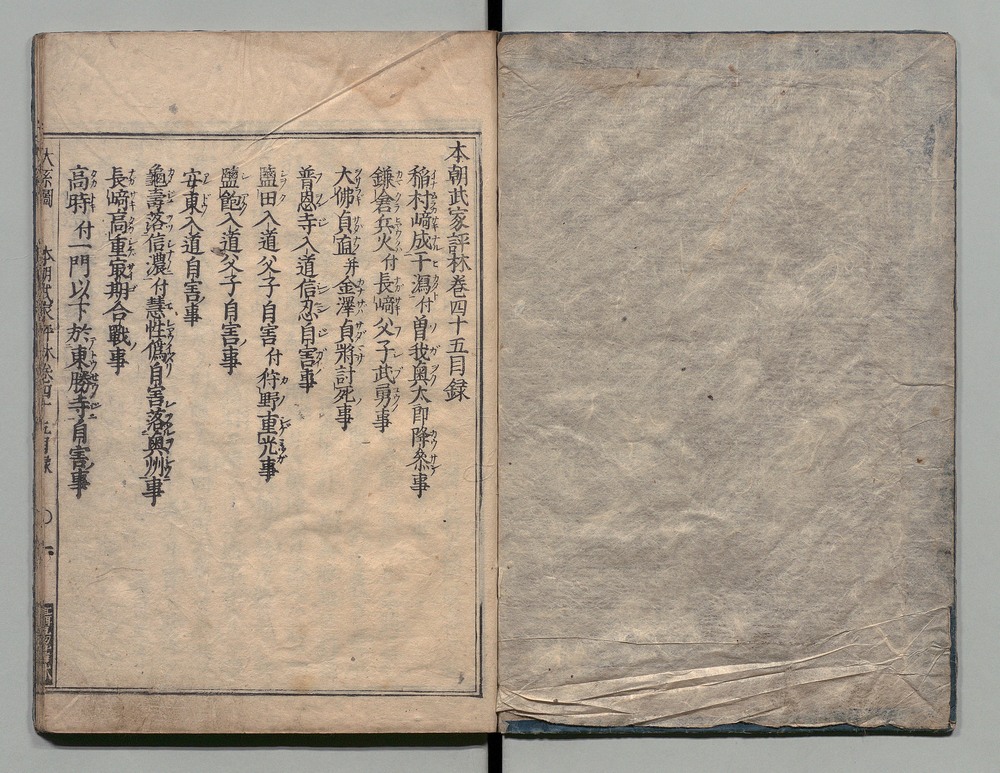 本朝武家評林巻四十五目録
稲村﨑成干潟付曽我奥太郎降参事
鎌倉兵火付長﨑父子武勇事
大佛貞直并金澤貞將討死事
普恩寺入道信忍自害事
鹽田入道父子自害付狩野重光事
鹽飽入道父子自害事
安東入道自害事
龜壽落信濃付慧性僞自害落奥州事
長﨑高重㝡期合戰事
高時付一門以下於東勝寺自害事
大系圖 本朝武家評林巻四十五目録 〇 一